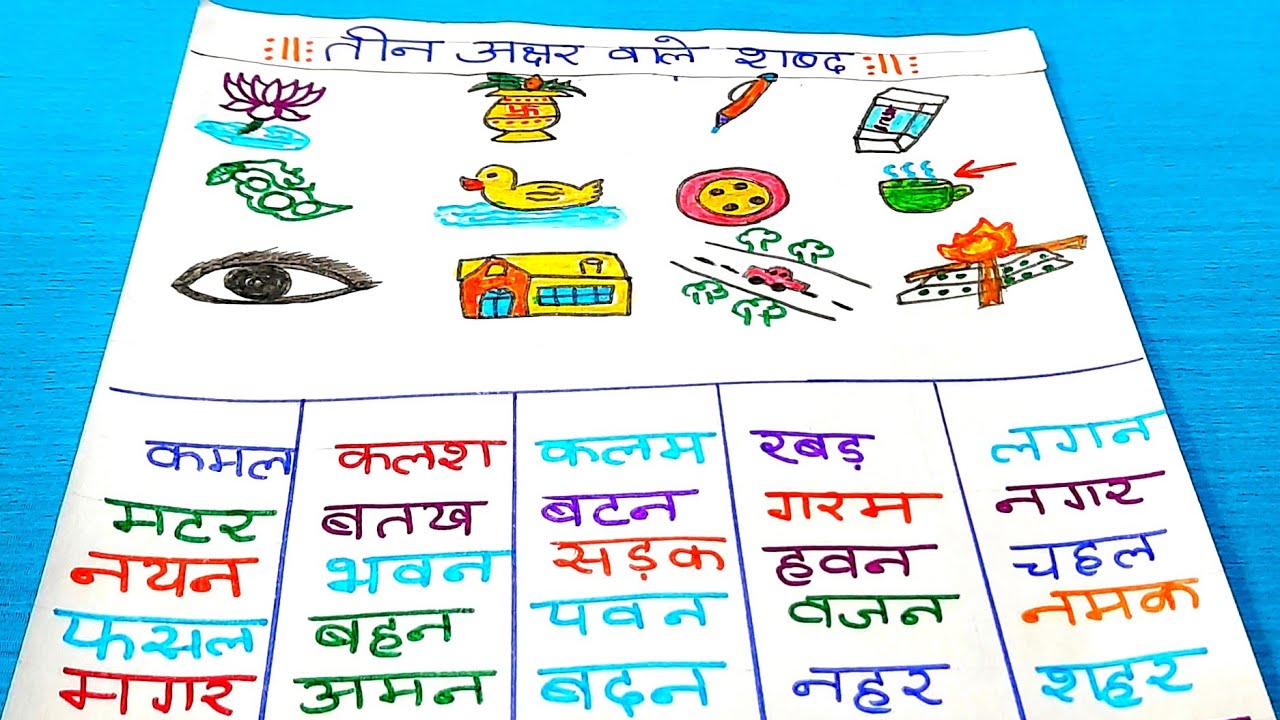 तीन अक्षर वाले शब्द
Fresh
कमल कलश कलम रबड़ लगन
मटर बतख बटन गरम नगर
नयन भवन सड़क हवन चहल
फसल बहन पवन वजन नमक
मगर अमन बदन नहर शहर